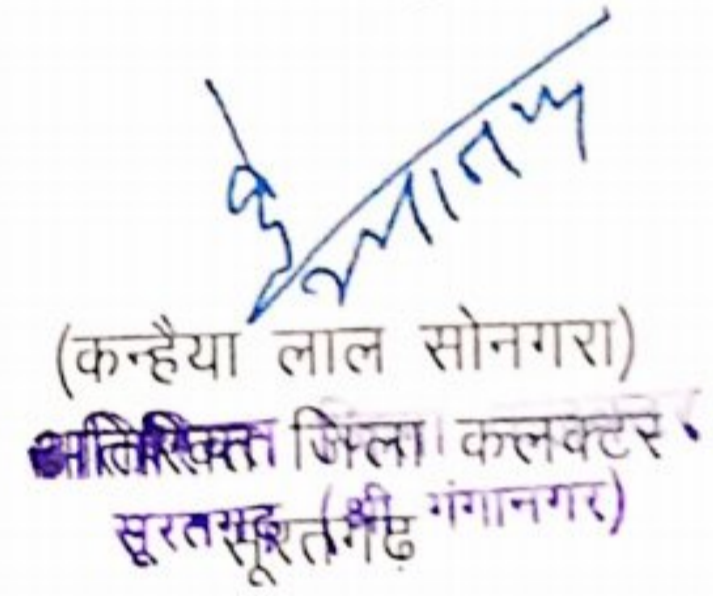 (कन्हैया लाल सोनगरा)
अतिरिक्त जिला कलक्टर
सूरतगढ़ (श्री गंगानगर)
सूरतगढ